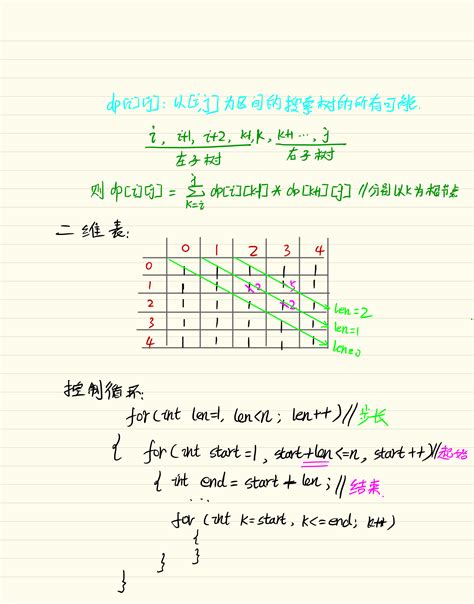 dp[i][j]：以[i,j]为区间的搜索树的所有可能.
i, i+1, i+2, k-1, k, k+1 ..., j
左子树 右子树
则 dp[i][j] = j∑k=i dp[i][k-1] * dp[k+1][j] //分别以k为根节点
二维表：
0 1 2 3 4
0 1 1 1 1 1
1 1 1 2 5
2 1 1 1 2 1 len=2
3 1 1 1 1 1 len=1
4 1 1 1 1 1 len=0
控制循环：
for(int len=1, len<n; len++)//步长
{ for(int start=1, start+len<=n, start++)//起始
{ int end = start + len; //结束
...
for (int k=start, k<=end; k++)
{
}
}
}